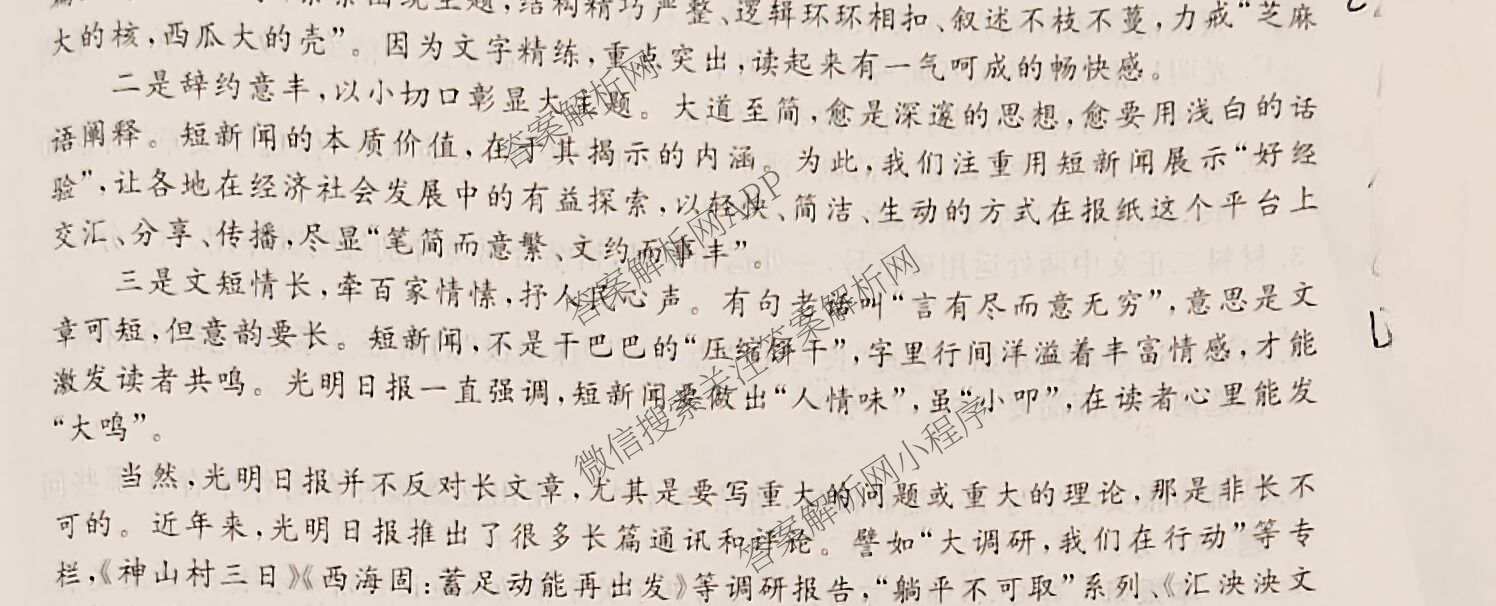 出现主题,结构精巧严整、逻辑环环相扣、叙述不枝不蔓,力戒“芝麻
大的核,西瓜大的壳”。因为文字精练,重点突出,读起来有一气呵成的畅快感。
二是辞约意丰,以小切口彰显大主题。大道至简,愈是深邃的思想,愈要用浅白的话
语阐释。短新闻的本质价值,在于其揭示的内涵。为此,我们注重用短新闻展示“好经
验”,让各地在经济社会发展中的有益探索,以轻快、简洁、生动的方式在报纸这个平台上
交汇、分享、传播,尽显“笔简而意繁、文约而事丰”。
三是文短情长,牵百家情愫,抒人民心声。有句老话叫“言有尽而意无穷”,意思是文
章可短,但意韵要长。短新闻,不是干巴巴的“压缩饼干”,字里行间洋溢着丰富情感,才能
激发读者共鸣。光明日报一直强调,短新闻要做出“人情味”,虽“小叩”,在读者心里能发
“大鸣”。
当然,光明日报并不反对长文章,尤其是要写重大的问题或重大的理论,那是非长不
可的。近年来,光明日报推出了很多长篇通讯和评论。譬如“大调研,我们在行动”等专
栏,《神山村三日》《西海固:蓄足动能再出发》等调研报告,“躺平不可取”系列、《汇泱泱文
答案解析网
答案解析网APP
微信搜索关注答案解析网
答案解析网小程序